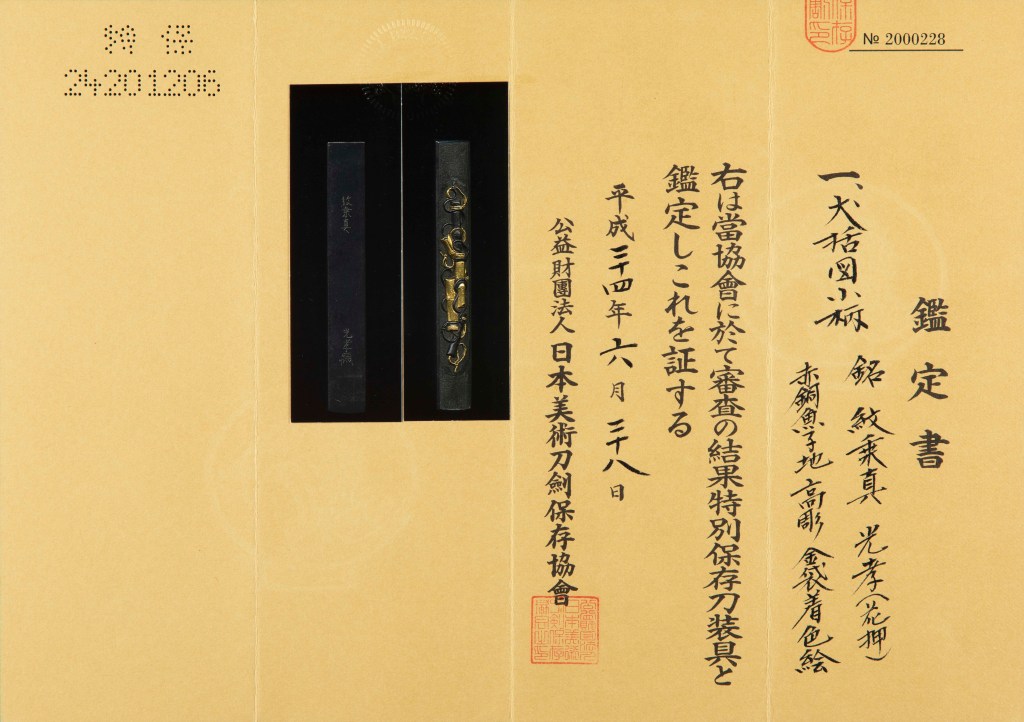 特 保
24201206
№ 2000228
鑑定書
一、犬括図小柄 銘 紋乗真 光孝(花押)
赤銅魚子地 高彫 金袋着色絵
右は當協會に於て審査の結果特別保存刀装具と
鑑定しこれを証する
平成二十四年六月二十八日
公益財團法人 日本美術刀劍保存協會
紋乗真
光孝